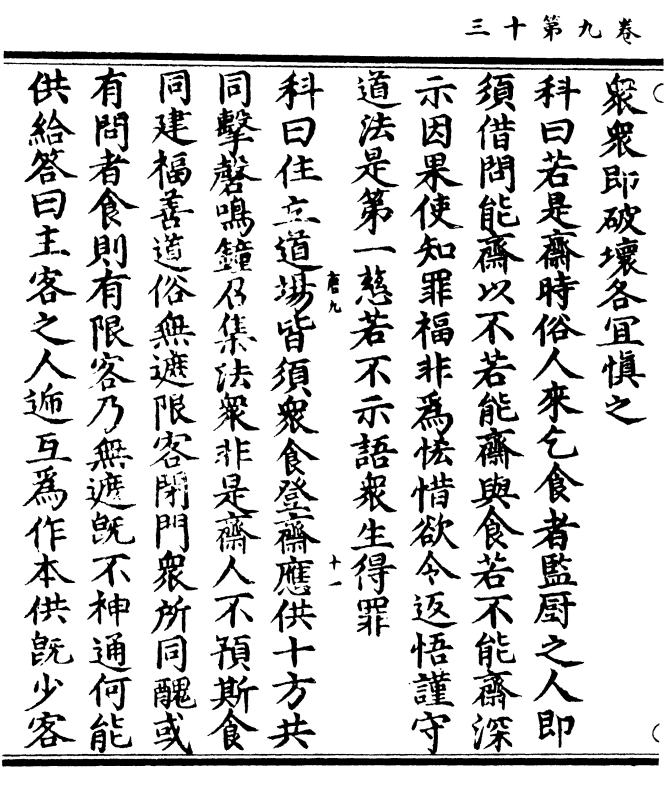 卷九第十三
眾眾即破壞各宜慎之
科曰若是齋時俗人來乞食者監厨之人即
須借問能齋以不若能齋與食若不能齋深
示因果使知罪福非為恡惜欲令返悟謹守
道法是第一慈若不示語眾生得罪
唐九
十一
科曰住立道場皆須眾食登齋應供十方共
同擊磬鳴鐘召集法眾非是齋人不預斯食
同建福善道俗無遮限客閉門眾所同醜或
有問者食則有限客乃無遮旣不神通何能
供給答曰主客之人遞互為作本供旣少客